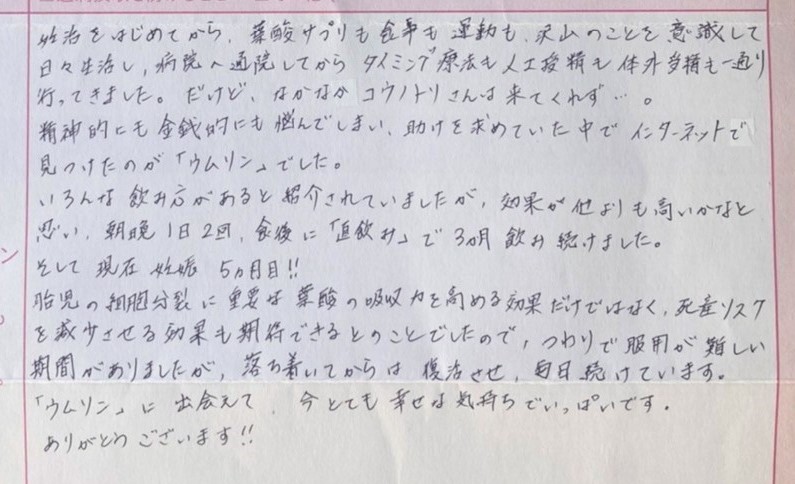 妊活をはじめてから、葉酸サプリも食事も運動も、沢山のことを意識して
日々生活し、病院へ通院してからタイミング療法も人工授精も体外受精も一通り
行ってきました。だけど、なかなかコウノトリさんは来てくれず…。
精神的にも金銭的にも悩んでしまい、助けを求めていた中でインターネットで
見つけたのが「ウムリン」でした。
いろんな飲み方があると紹介されていましたが、効果が他よりも高いかなと
思い、朝晩1日2回、食後に「直飲み」で3ヵ月飲み続けました。
そして現在妊娠5ヵ月目!!
胎児の細胞分裂に重要な葉酸の吸収力を高める効果だけではなく、死産リスク
を減少させる効果も期待できるとのことでしたので、つわりで服用が難しい
期間がありましたが、落ち着いてからは復活させ、毎日続けています。
「ウムリン」に出会えて、今とても幸せな気持ちでいっぱいです。
ありがとうございます!!